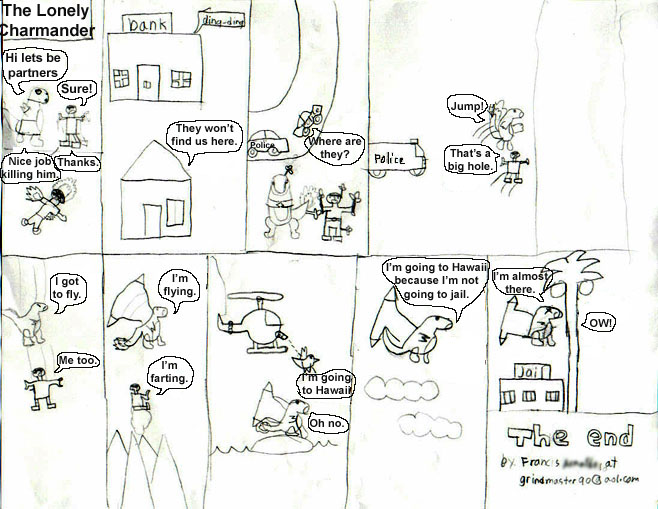 The Lonely
Charmander
Hi lets be
partners
Sure!
Nice job
killing him.
Thanks.
bank
ding-ding
They won't
find us here.
Police
Where are
they?
Police
Jump!
That's a
big hole.
I got
to fly.
Me too.
I'm
flying.
I'm
farting.
I'm going
to Hawaii
Oh no.
I'm going to Hawaii
because I'm not
going to jail.
I'm almost
there.
OW!
Jail
The end
by. Francis at
grindmaster90@aol.com